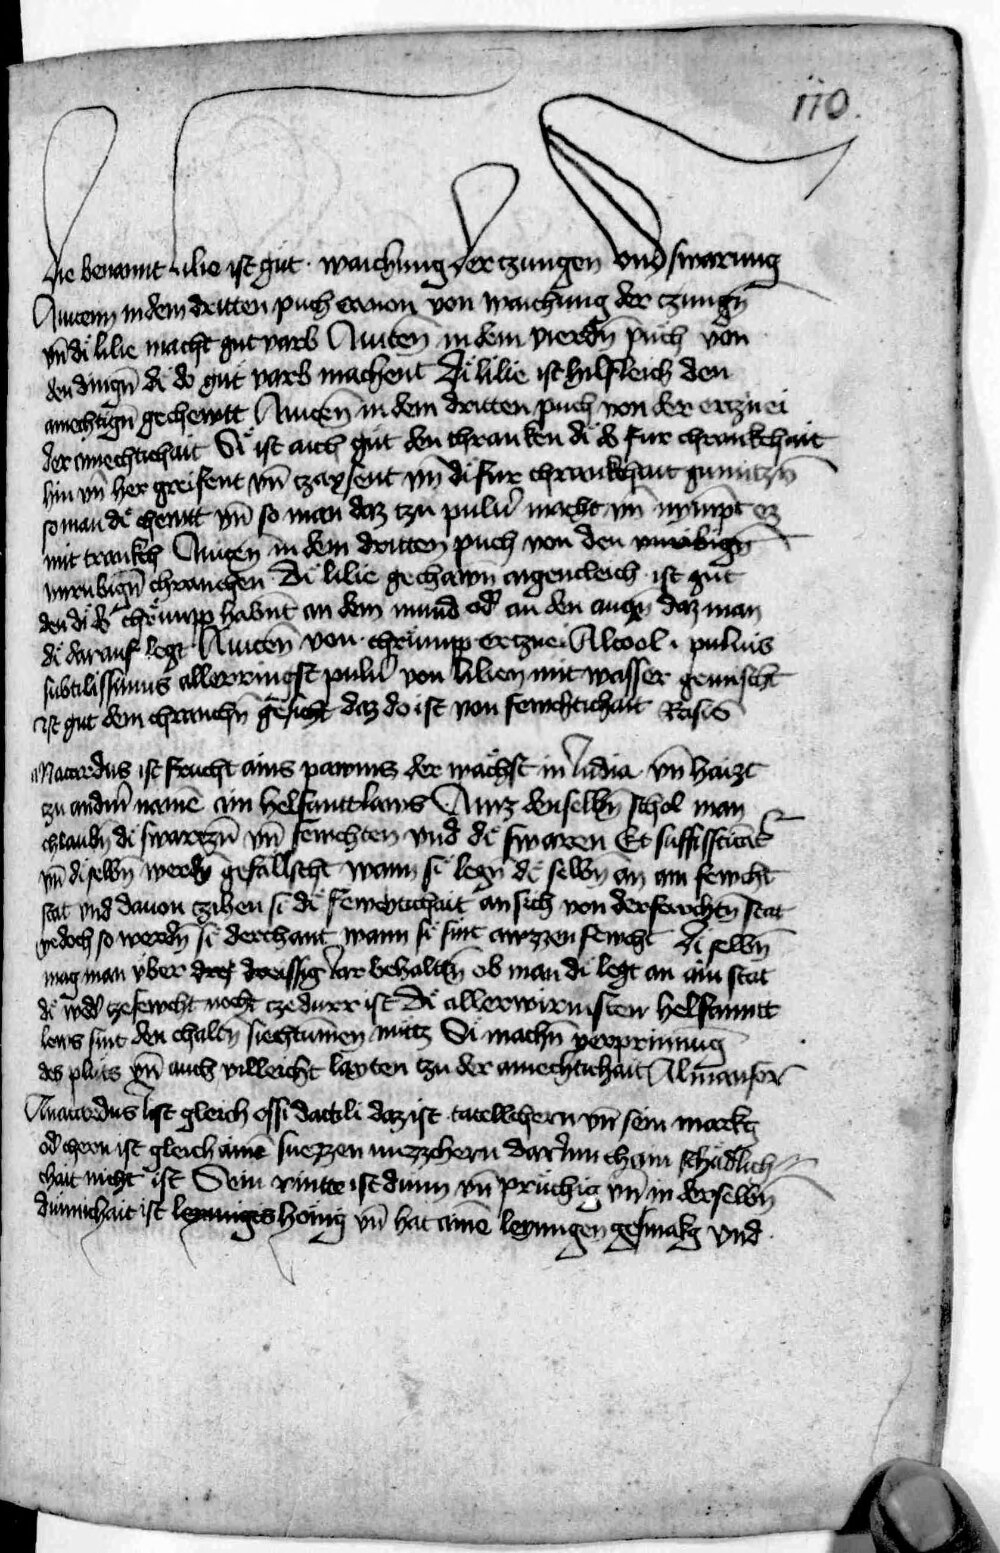 110.
Die benannt lilie ist gut · waichung der czungen und swarung
Auicenn in dem dritten puch canon von waichung der czungn̄
vn̄ di lilie macht gut varb Auicen̄ in dem vierdn̄ puch von
den dingn̄ di do gut varb machent Di lilie ist hilfleich den
amechtign̄ gechewtt Auicen̄ in dem dritten puch von der ercznei
der amechtichait Si ist auch gut den chranken di do fur chrankchait
hin vn̄ her greifent vn̄ vn̄ di fur chrankhait
so man di chewtt vn̄ so man daz tzu puluer macht vn̄ nympt ez
mit trankch Auicen̄ in dem dritten puch von den
vnrubign̄ chranchen Di lilie gechawn ist gut
den di do chrump habnt an dem mund od an den augn̄ daz man
di darauf legt Auicen von chrump ercznei Alcool · puluis
subtilissimus allerringst puluer von lilien mit wasser gemischt
ist gut dem chranchn̄ gesicht daz do ist von fewchtichait Rasis
aNacardus ist frucht ains pawms der wachst in India vn̄ haizt
zu andm̄ namē ain helfanttlaws Aurz denselbn̄ schol man
chlaubn̄ di swarczn̄ vn̄ fewchten vnd di swaren Et
vn̄ di selbn̄ werdn̄ gefallscht wann si legn̄ di selbn̄ an ain fewcht
stat vnd dauon czihen si di fewchtichait an sich von der fewchtn̄ stat
yedoch so werdn̄ si derchant wann si sint auzzen fewcht Di selbn̄
mag man vber drey dreissig iar behaltn̄ ob man di legt an ain stat
di wed zefewcht nocht ze durr ist Di allerwirmisten helfanntt
lews sint den chaltn̄ siechtumen nutz Si machn̄ verprinnūg
des pluts vn̄ auch villeicht layten tzu der amechtichait Almansor
Anacardus ist gleich ossi dactili daz ist tatellchern vn̄ sein markg
od chern ist gleich ainē suezzen nuzzchern darInn chain schadlich
chait nicht ist Sein rintte ist dunn vn̄ pruchig vn̄ in derselbn̄
dunnichait ist leymigs honig vn̄ hat ainē leymigen gesmakg vnd